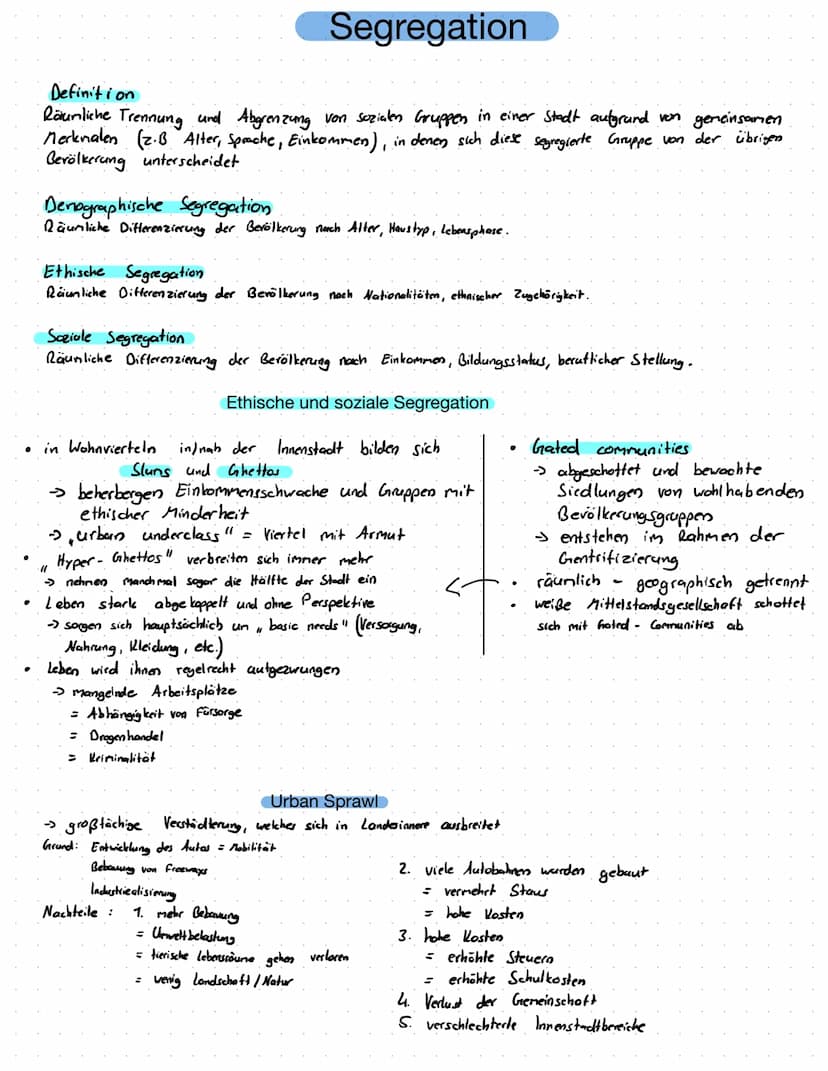 Segregation
Definition
Räumliche Trennung und Abgrenzung von sozialen Gruppen in einer Stadt aufgrund von gemeinsamen
Merkmalen (z.B Alter, Sprache, Einkommen), in denen sich diese segregierte Gruppe von der übrigen
Bevölkerung unterscheidet
Demographische Segregation
Räumliche Differenzierung der Bevölkerung nach Alter, Haustyp, Lebensphase.
Ethische Segregation
Räumliche Differenzierung der Bevölkerung nach Nationalitäten, ethnischer Zugehörigkeit.
Soziale Segregation
Räumliche Differenzierung der Bevölkerung nach Einkommen, Bildungsstatus, beruflicher Stellung.
Ethische und soziale Segregation
• in Wohnvierteln in/nah der Innenstadt bilden sich
Slums und Ghettos
-> beherbergen Einkommensschwache und Gruppen mit
ethischer Minderheit
-> „urban underclass" = Viertel mit Armut
• „Hyper-Ghettos" verbreiten sich immer mehr
-> nehmen manchmal sogar die Hälfte der Stadt ein
• Leben stark abgekappelt und ohne Perspektive
-> sorgen sich hauptsächlich um „basic needs" (Versorgung,
Nahrung, Kleidung, etc.)
• Leben wird ihnen regelrecht aufgezwungen
-> mangelnde Arbeitsplätze
= Abhängigkeit von Fürsorge
= Drogenhandel
= Kriminalität
• Gated communities
-> abgeschottet und bewachte
Siedlungen von wohlhabenden
Bevölkerungsgruppen
-> entstehen im Rahmen der
Gentrifizierung
• räumlich - geographisch getrennt
• weiße Mittelstandsgesellschaft schottet
sich mit Gated-Communities ab
Urban Sprawl
-> großflächige Verstädterung, welches sich in Landesinnere ausbreitet
Grund: Entwicklung des Autos = Mobilität
Bebauung von Freeways
Industriealisierung
Nachteile: 1. mehr Bebauung
= Umweltbelastung
= tierische Lebensräume gehen verloren
= wenig Landschaft/Natur
2. viele Autobahnen wurden gebaut
= vermehrt Staus
= hohe Kosten
3. hohe Kosten
= erhöhte Steuern
= erhöhte Schulkosten
4. Verlust der Gemeinschaft
5. verschlechterte Innenstadtbereiche